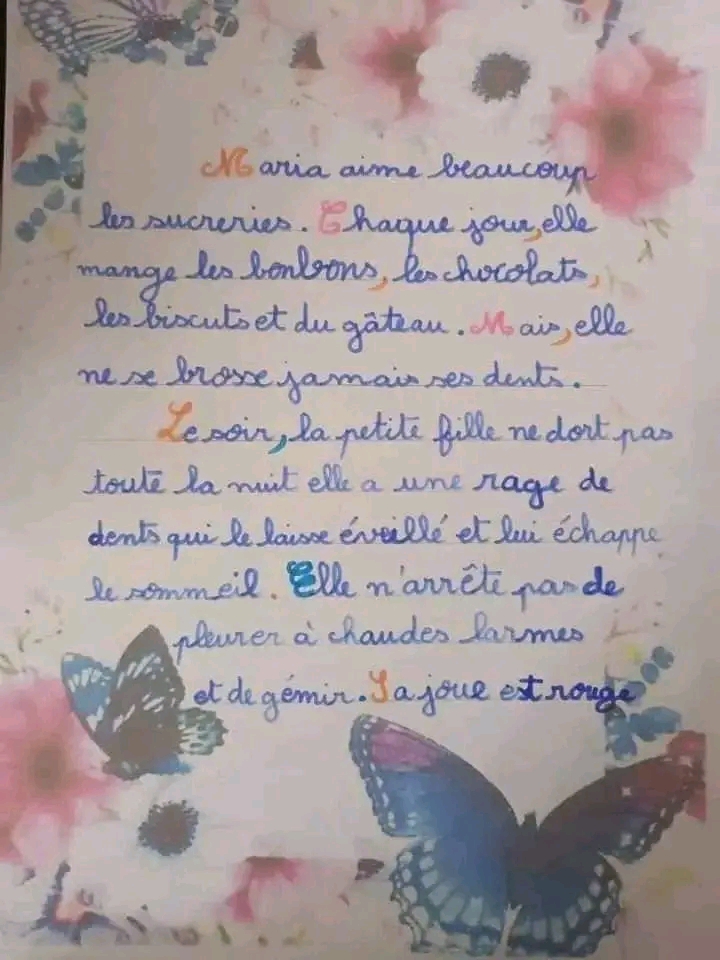 Maria aime beaucoup
les sucreries. Chaque jour, elle
mange les bonbons, les chocolats,
les biscuts et du gâteau. Mais, elle
ne se brosse jamais ses dents.
Le soir, la petite fille ne dort pas
toute la nuit elle a une rage de
dents qui le laisse éveillé et lui échappe
le sommeil. Elle n'arrête pas de
pleurer à chaudes larmes
et de gémir. Sa joue est rouge